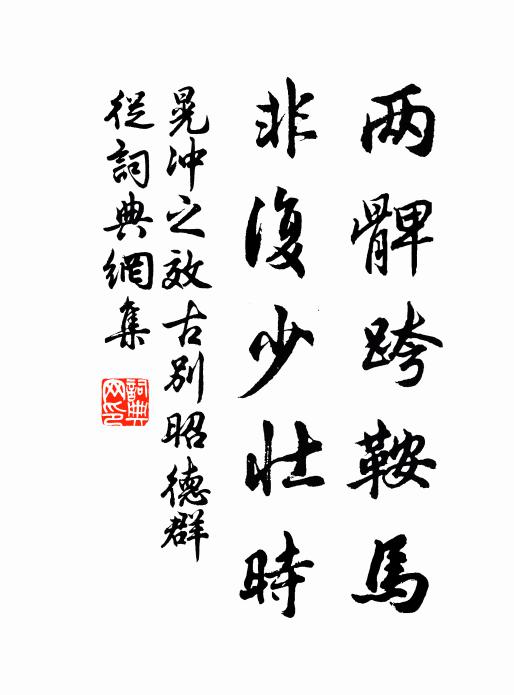 两髀跨鞍馬
非復少壯時
晁冲之效古別昭德群
從詞典網集
詞典網印